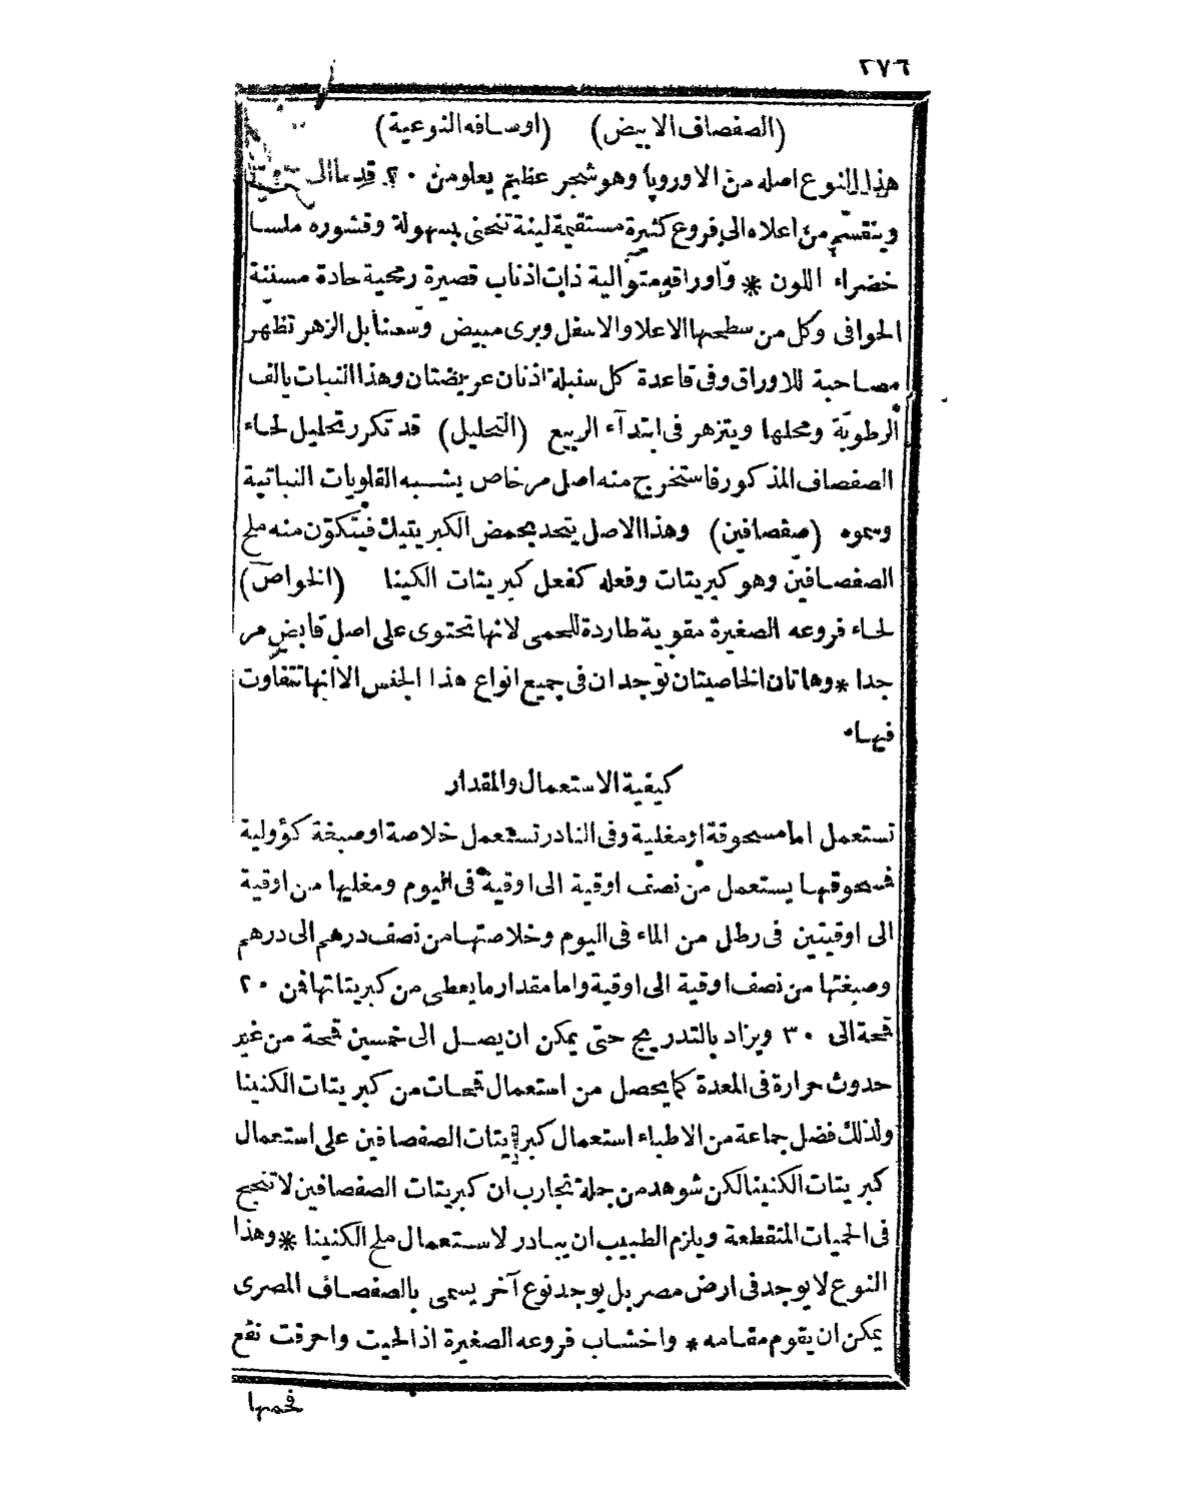 ٢٧٦
(الصفصاف الابيض) (اوصافه النوعية)
هذا النوع اصله من الاوروپا وهو شجر عظيم يعلو من ٢٠ قدما الى
وينقسم من اعلاه الى فروع كثيرة مستقيمة لينة تنحنى بسهولة وقشوره ملسا
خضراء اللون * واوراقه متوالية ذات اذناب قصيرة رمحية حادة مسننة
الحوافى وكل من سطحها الاعلا والاسفل وبرى مبيض وسنابل الزهر تظهر
مصاحبة للاوراق وفى قاعدة كل سنبلة اذنان عريضتان وهذا النبات يالف
الرطوبة ومحلها ويتزهر فى ابتدآء الربيع (التحليل) قد تكرر تحليل لحاء
الصفصاف المذكور فاستخرج منه اصل مر خاص يشبه القلويات النباتية
وسموه (صفصافين) وهذا الاصل يتحد بحمض الكبريتيك فيتكوّن منه ملح
الصفصافين وهو كبريتات وفعله كفعل كبريتات الكينا (الخواص)
لحاء فروعه الصغيرة مقوية طاردة للحمى لانها تحتوى على اصل قابض مر
جدا * وهاتان الخاصيتان توجدان فى جميع انواع هذا الجنس الا انها تتفاوت
فيها.
كيفية الاستعمال والمقدار
تستعمل اما مسحوقة او مغلية وفى النادر تستعمل خلاصة او صبغة كؤولية
فمسحوقها يستعمل من نصف اوقية الى اوقية فى اليوم ومغليها من اوقية
الى اوقيتين فى رطل من الماء فى اليوم وخلاصتها من نصف درهم الى درهم
وصبغتها من نصف اوقية الى اوقية واما مقدار ما يعطى من كبريتاتها فمن ٢٠
قمحة الى ٣٠ ويزاد بالتدريج حتى يمكن ان يصل الى خمسين قمحة من غير
حدوث حرارة فى المعدة كما يحصل من استعمال قمحات من كبريتات الكنينا
ولذلك فضل جماعة من الاطباء استعمال كبريتات الصفصافين على استعمال
كبريتات الكنينا لكن شوهد من جملة تجارب ان كبريتات الصفصافين لا تنجح
فى الحميات المتقطعة ويلزم الطبيب ان يبادر لاستعمال ملح الكنينا * وهذا
النوع لا يوجد فى ارض مصر بل يوجد نوع آخر يسمى بالصفصاف المصرى
يمكن ان يقوم مقامه * واخشاب فروعه الصغيرة اذا لحيت واحرقت نفع
فحمها